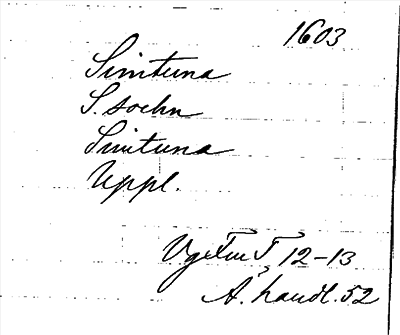 1603
Simtuna
S. sockn
Simtuna
Uppl.
12-13
Å. handl. 52